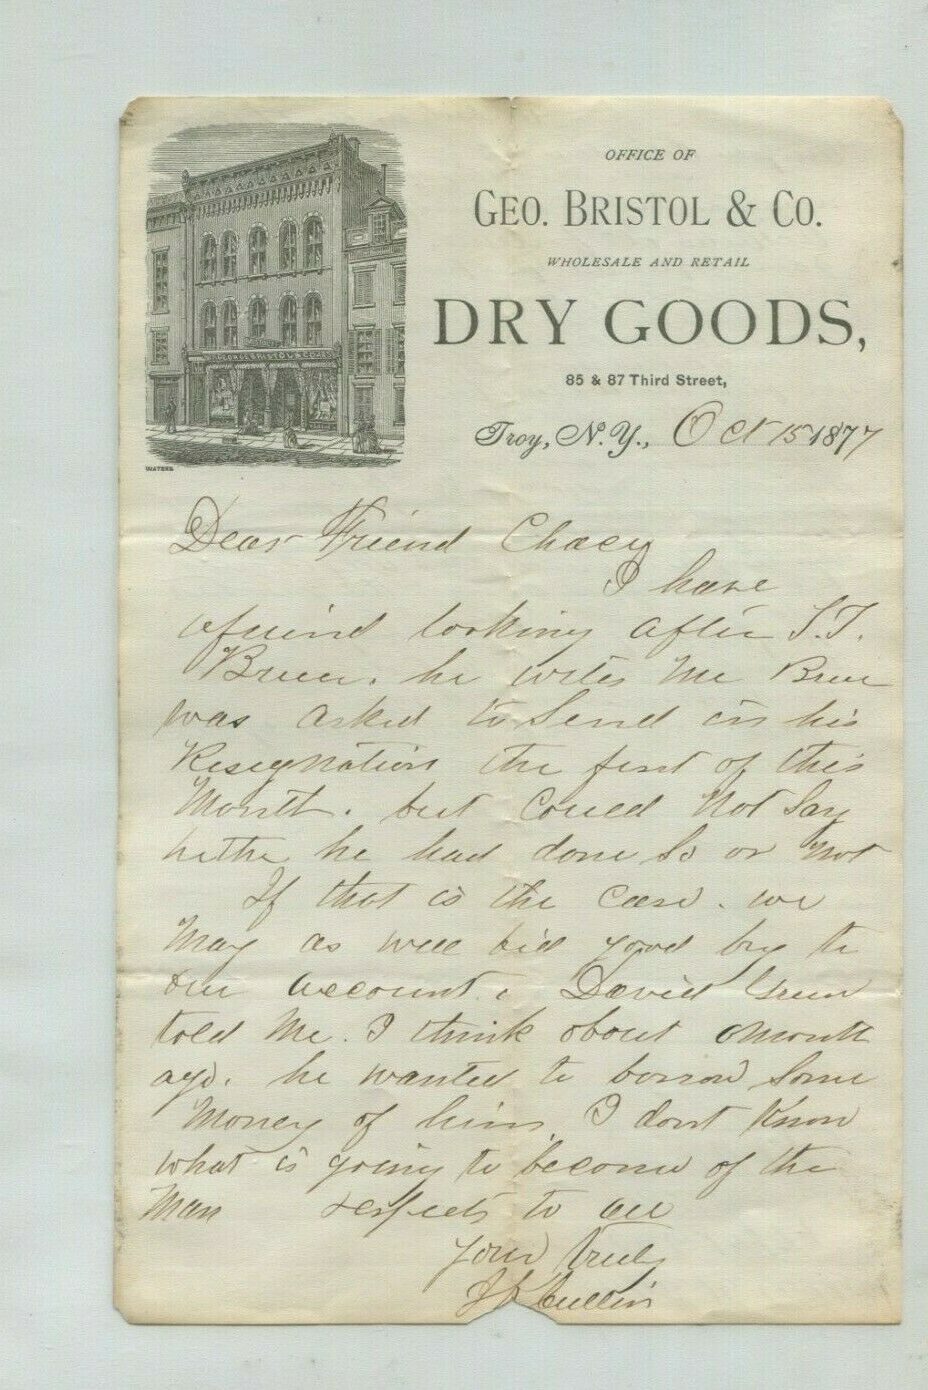 OFFICE OF
GEO. BRISTOL & CO.
WHOLESALE AND RETAIL
DRY GOODS,
85 & 87 Third Street,
Troy, N.Y., Oct 15 1877
GEORGE BRISTOL & CO.
WATERS
Dear Friend Chacy
I have
a friend looking after S.T.
Bruce. he writes me Bruce
was asked to send in his
Resignation the first of this
Month. but could Not Say
he had done So or Not
If that is the case. we
May as well bid good by to
our account. David Green
told Me. I think about a month
ago. he wanted to borrow Some
Money of him. I dont Know
what is going to become of the
Man respects to all
Your Truly